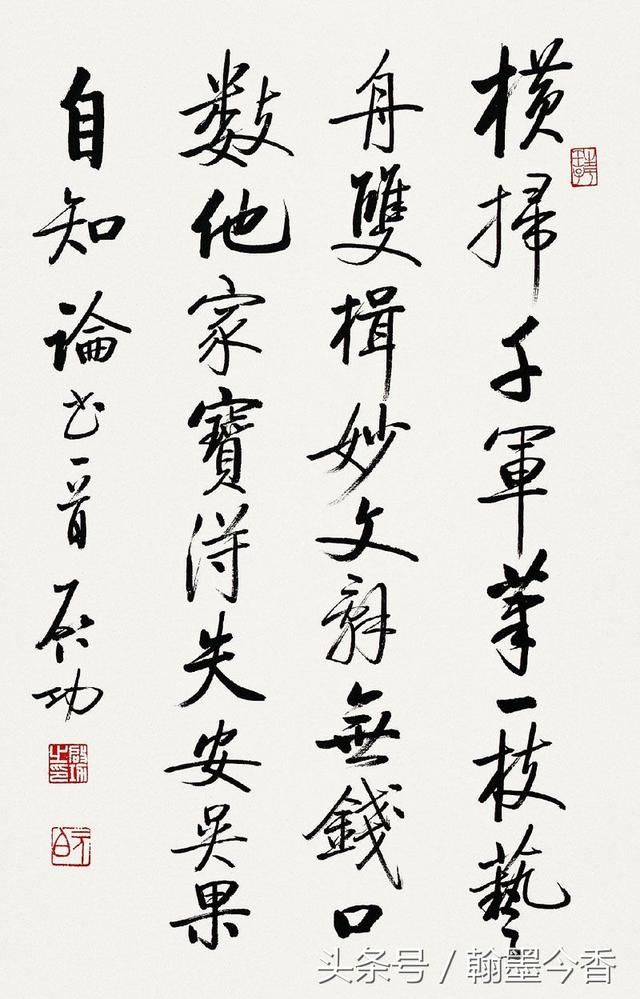 橫掃千軍筆一枝藝
舟雙楫妙文辭無錢口
數他家寶得失安吳果
自知 論書一首 啟功
頭条号 / 翰墨今香